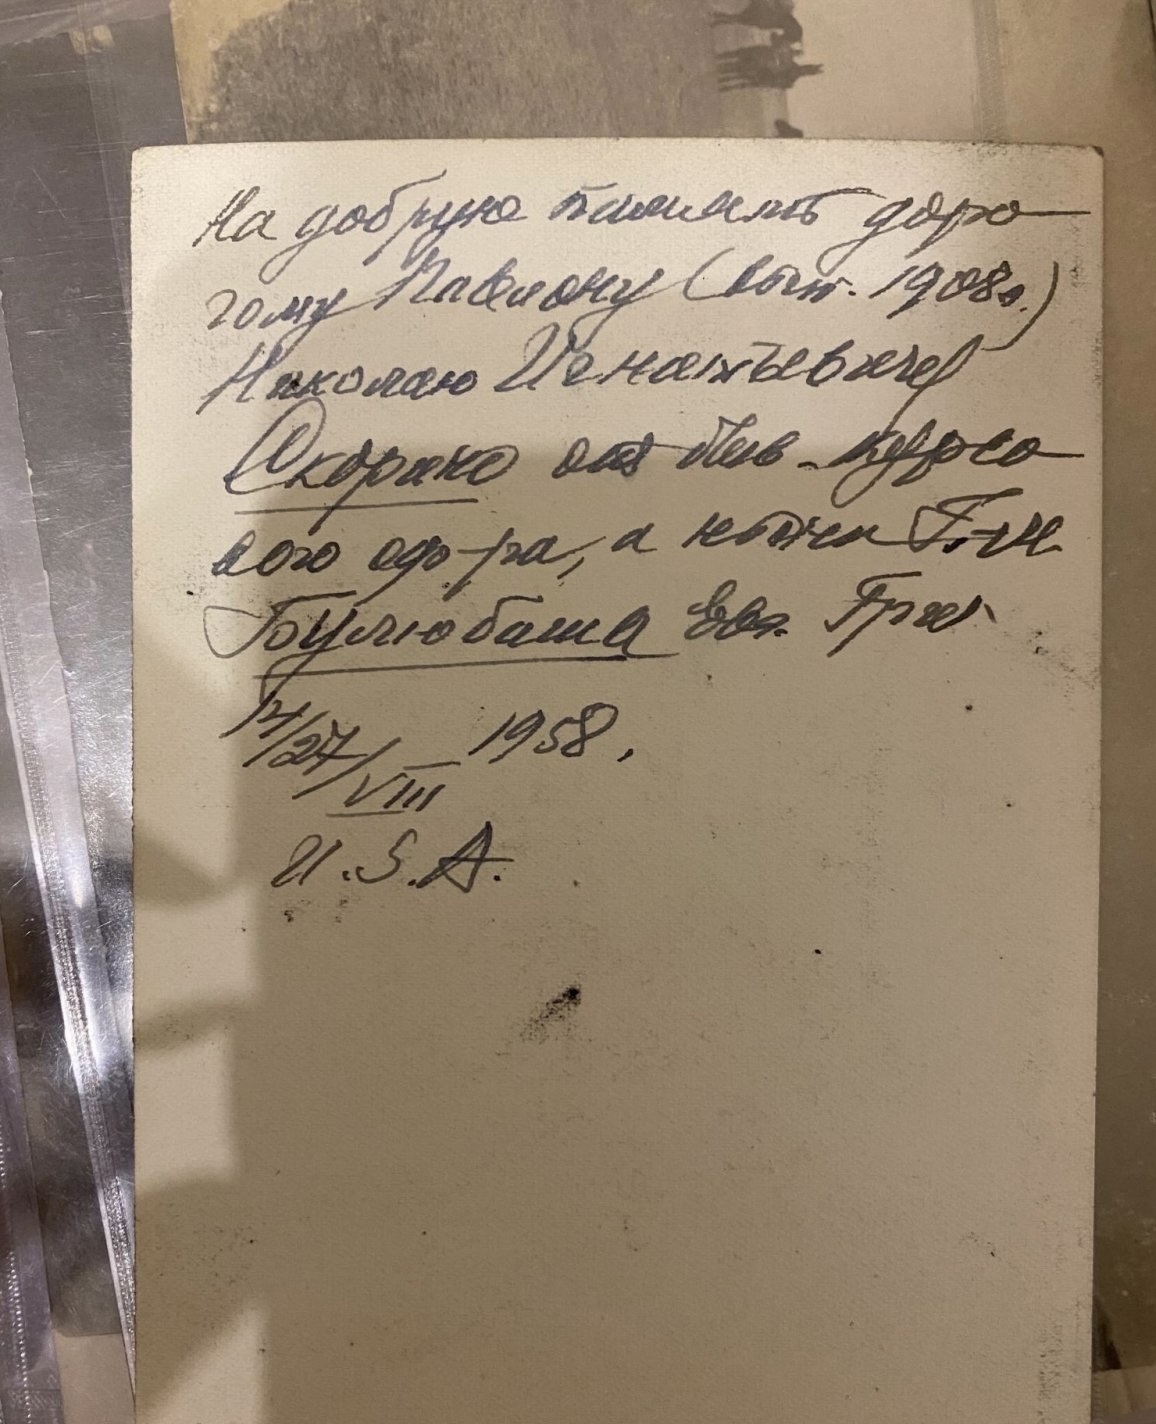 На добрую память доро-
гому Павлону (вып. 1908г.)
Николаю Игнатьевичу
Скорино отъ быв. курсо-
вого оф-ра, а нынѣ Г.-м.
Булюбаша Евг. Григ.
14/27/VIII 1958.
U.S.A.